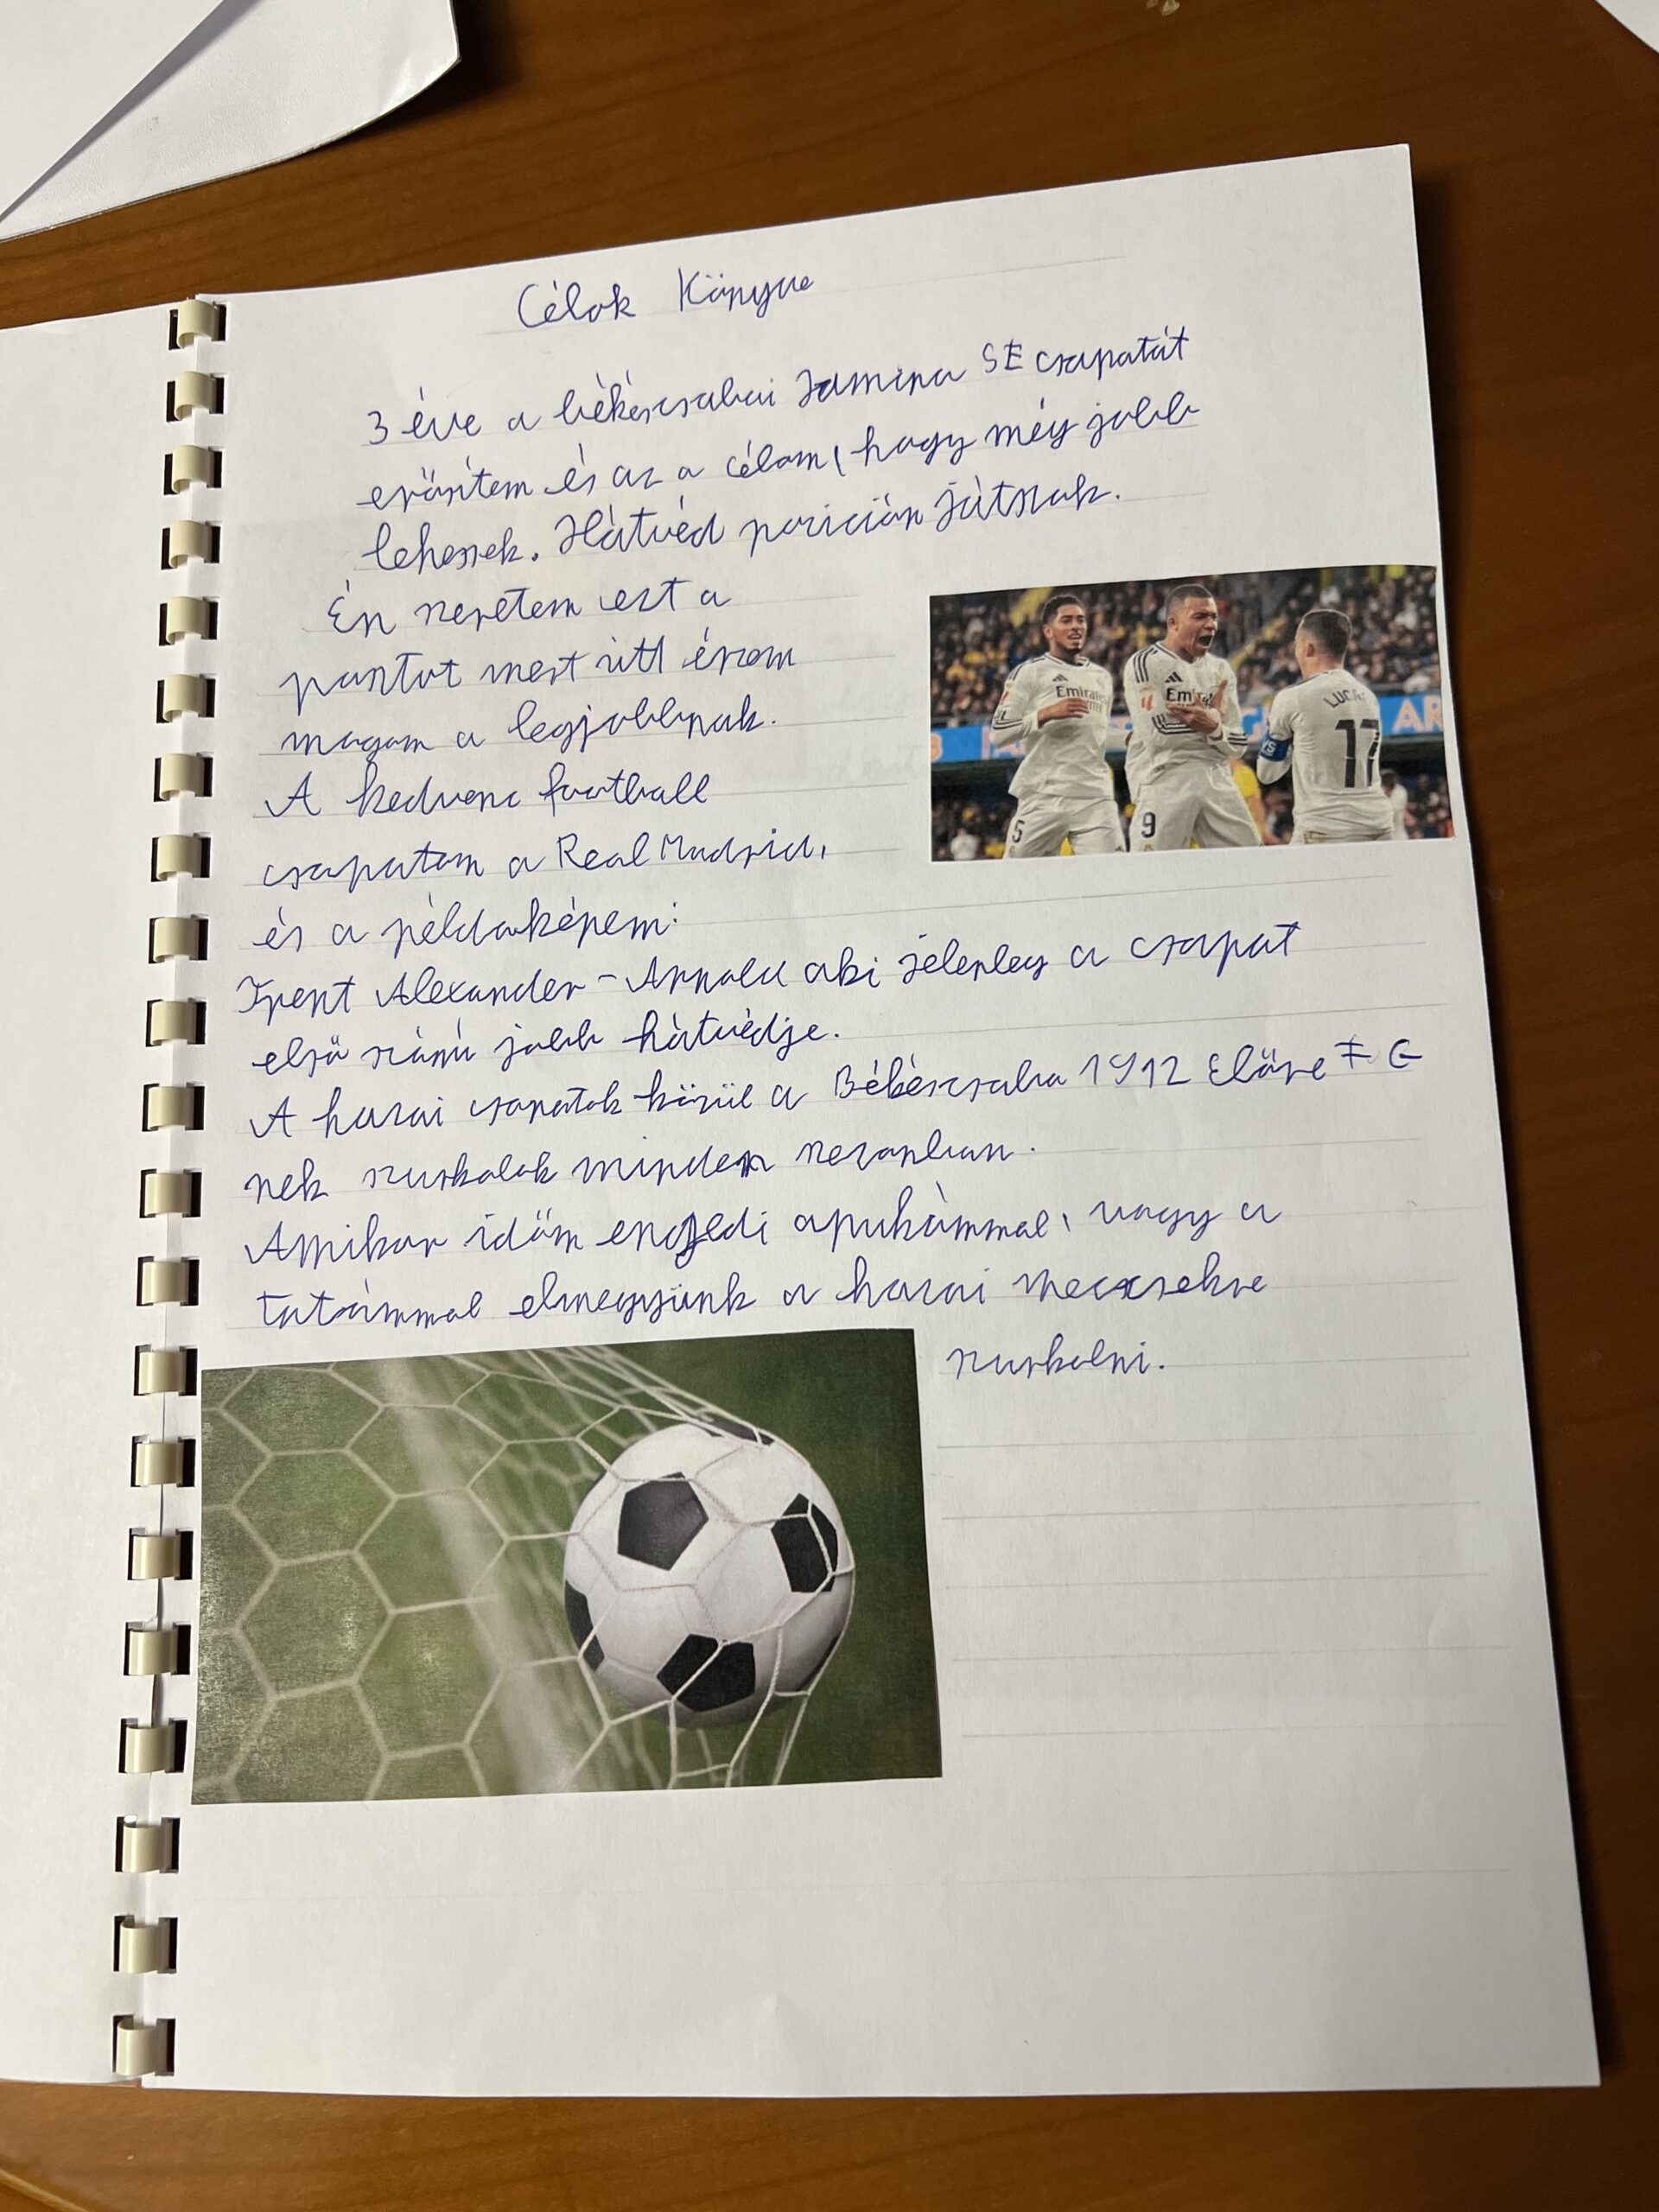 Célok Könyve
3 éve a békéscsabai Jamina SE csapatát
erősítem és az a célom, hogy még jobb
lehessek. Hátvéd pozición játszok.
Én szeretem ezt a
posztot mert itt érzem
magam a legjobbnak.
A kedvenc football
csapatom a Real Madrid,
és a példaképem:
Trent Alexander-Arnold aki jelenleg a csapat
első számú jobb hátvédje.
A hazai csapatok közül a Békéscsaba 1912 Előre FC
nek szurkolok minden szezonban.
Amikor időm engedi apukámmal, vagy a
tatámmal elmegyünk a hazai meccsekre
szurkolni.
Emirates
5
9
LUCAS
17
AR